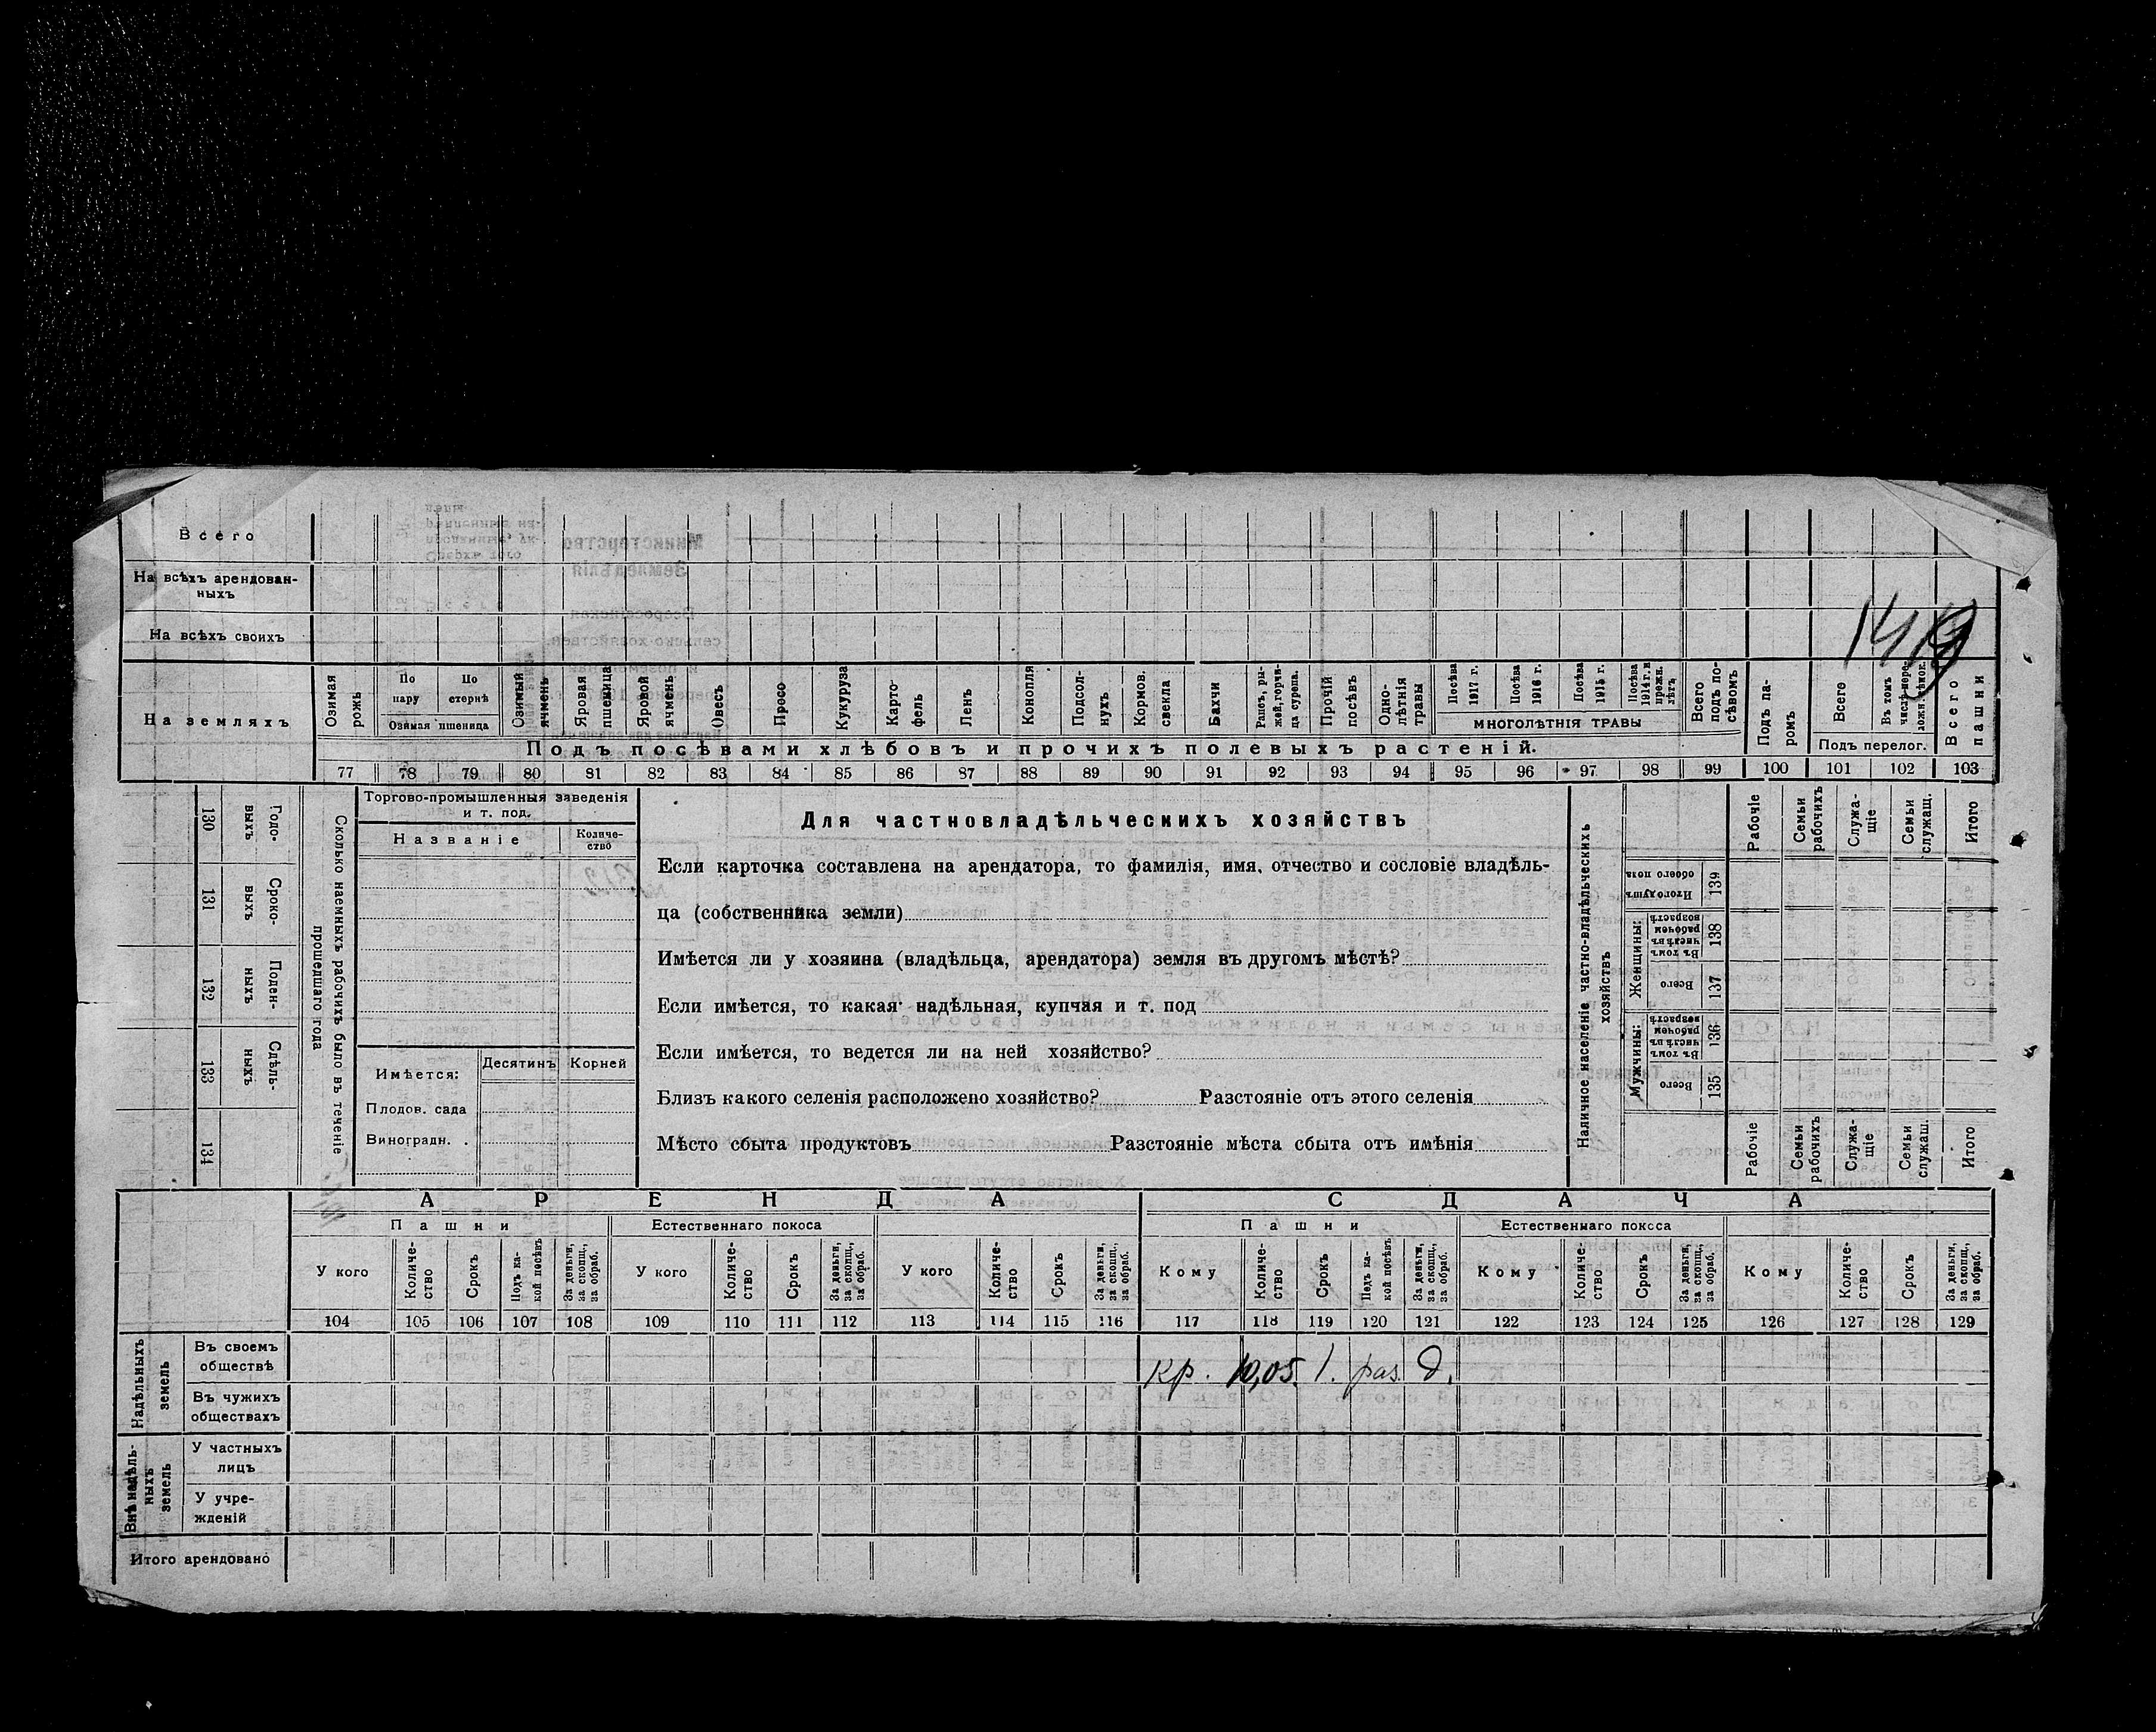 Всего
На всѣхъ арендован-
ныхъ
На всѣхъ своихъ
На земляхъ
Озимая рожь
По пару
По стернѣ
Озимая пшеница
Озимый ячмень
Яровая пшеница
Яровой ячмень
Овесъ
Просо
Кукуруза
Карто-
фель
Ленъ
Конопля
Подсол-
нухъ
Кормов. свекла
Бахчи
Рапсъ, ры-
жей, горчи-
ца сурепа.
Прочій посѣвъ
Одно-
лѣтнія травы
Посѣва 1917 г.
Посѣва 1916 г.
Посѣва 1915 г.
Посѣва 1914 г. и прежн. лѣтъ
МНОГОЛѢТНІЯ ТРАВЫ
Всего подъ по-
сѣвомъ
Подъ па-
ромъ
Всего
Въ томъ числѣ пере-
Подъ перелог.
Всего пашни
Подъ посѣвами хлѣбовъ и прочихъ полевыхъ растеній.
77 78 79 80 81 82 83 84 85 86 87 88 89 90 91 92 93 94 95 96 97 98 99 100 101 102 103
130 Годо-
выхъ
131 Сроко-
выхъ
132 Поден-
ныхъ
133 Сдѣль-
ныхъ
134
Сколько наемныхъ рабочихъ было въ теченіе
прошедшаго года
Торгово-промышленныя заведенія
и т. под.
Названіе
Количе-
ство
Имѣется:
Десятинъ
Корней
Плодов. сада
Виноградн.
Для частновладѣльческихъ хозяйствъ
Если карточка составлена на арендатора, то фамилія, имя, отчество и сословіе владѣль-
ца (собственника земли)
Имѣется ли у хозяина (владѣльца, арендатора) земля въ другомъ мѣстѣ?
Если имѣется, то какая надѣльная, купчая и т. под
Если имѣется, то ведется ли на ней хозяйство?
Близъ какого селенія расположено хозяйство? Разстояніе отъ этого селенія
Мѣсто сбыта продуктовъ Разстояніе мѣста сбыта отъ имѣнія
Наличное населеніе частно-владѣльческихъ
хозяйствъ
Рабочіе
Семьи рабочихъ
Служа-
щіе
Семьи служащ.
Итого
Итого душъ обоего пола
139
Женщины:
Въ томъ числѣ въ рабочемъ возрастѣ
138
Всего
137
Мужчины:
Въ томъ числѣ въ рабочемъ возрастѣ
136
Всего
135
Рабочіе
Семьи рабочихъ
Служа-
щіе
Семьи служащ.
Итого
АРЕНДА
СДАЧА
Пашни
Естественнаго покоса
Пашни
Естественнаго покоса
У кого
Количе-
ство
Срокъ
Подъ ка-
кой посѣвъ
За деньги, за скопщ., за обраб.
У кого
Количе-
ство
Срокъ
За деньги, за скопщ., за обраб.
У кого
Количе-
ство
Срокъ
За деньги, за скопщ., за обраб.
Кому
Количе-
ство
Срокъ
Подъ ка-
кой посѣвъ
За деньги, за скопщ., за обраб.
Кому
Количе-
ство
Срокъ
За деньги, за скопщ., за обраб.
Кому
Количе-
ство
Срокъ
За деньги, за скопщ., за обраб.
104 105 106 107 108 109 110 111 112 113 114 115 116 117 118 119 120 121 122 123 124 125 126 127 128 129
Надѣльныхъ земель
Въ своемъ
обществѣ
кр. 10,05. 1. раз. д.
Въ чужихъ
обществахъ
Внѣ надѣль-
ныхъ земель
У частныхъ
лицъ
У учре-
жденій
Итого арендовано